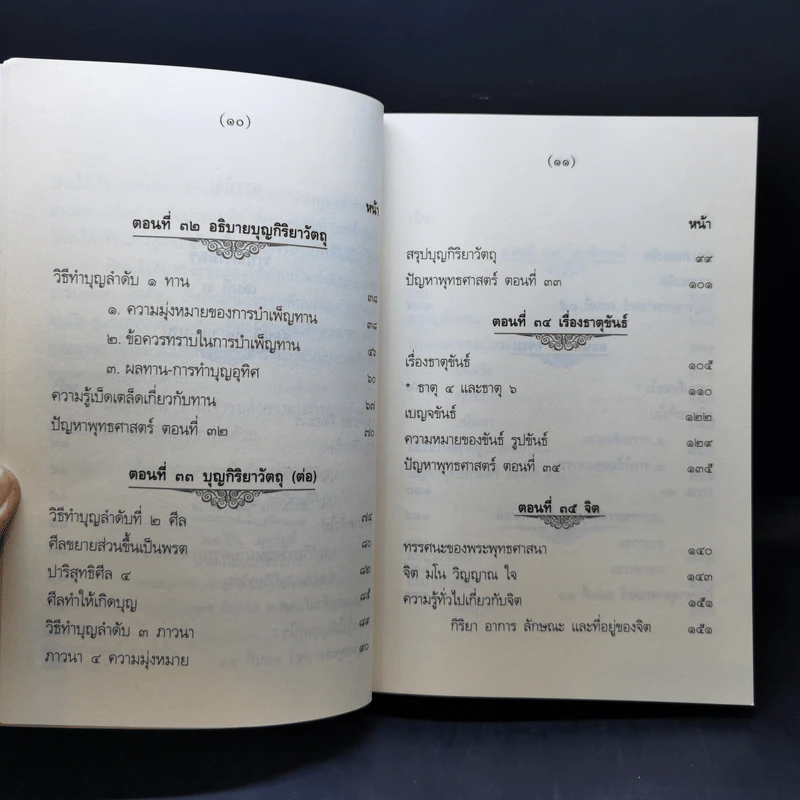 (๑๐)
หน้า
ตอนที่ ๓๒ อธิบายบุญกิริยาวัตถุ
วิธีทำบุญลำดับ ๑ ทาน ๓๘
๑. ความมุ่งหมายของการบำเพ็ญทาน ๓๘
๒. ข้อควรทราบในการบำเพ็ญทาน ๔๖
๓. ผลทาน-การทำบุญอุทิศ ๖๐
ความรู้เบ็ดเตล็ดเกี่ยวกับทาน ๖๗
ปัญหาพุทธศาสตร์ ตอนที่ ๓๒ ๗๐
ตอนที่ ๓๓ บุญกิริยาวัตถุ (ต่อ)
วิธีทำบุญลำดับที่ ๒ ศีล ๗๔
ศีลขยายส่วนขึ้นเป็นพรต ๘๐
ปาริสุทธิศีล ๔ ๘๒
ศีลทำให้เกิดบุญ ๘๕
วิธีทำบุญลำดับ ๓ ภาวนา ๘๙
ภาวนา ๔ ความมุ่งหมาย ๙๐
(๑๑)
หน้า
สรุปบุญกิริยาวัตถุ ๙๙
ปัญหาพุทธศาสตร์ ตอนที่ ๓๓ ๑๐๑
ตอนที่ ๓๔ เรื่องธาตุขันธ์
เรื่องธาตุขันธ์ ๑๐๕
* ธาตุ ๔ และธาตุ ๖ ๑๑๐
เบญจขันธ์ ๑๒๒
ความหมายของขันธ์ รูปขันธ์ ๑๒๙
ปัญหาพุทธศาสตร์ ตอนที่ ๓๔ ๑๓๕
ตอนที่ ๓๕ จิต
ทรรศนะของพระพุทธศาสนา ๑๔๐
จิต มโน วิญญาณ ใจ ๑๔๓
ความรู้ทั่วไปเกี่ยวกับจิต ๑๕๑
กิริยา อาการ ลักษณะ และที่อยู่ของจิต ๑๕๑